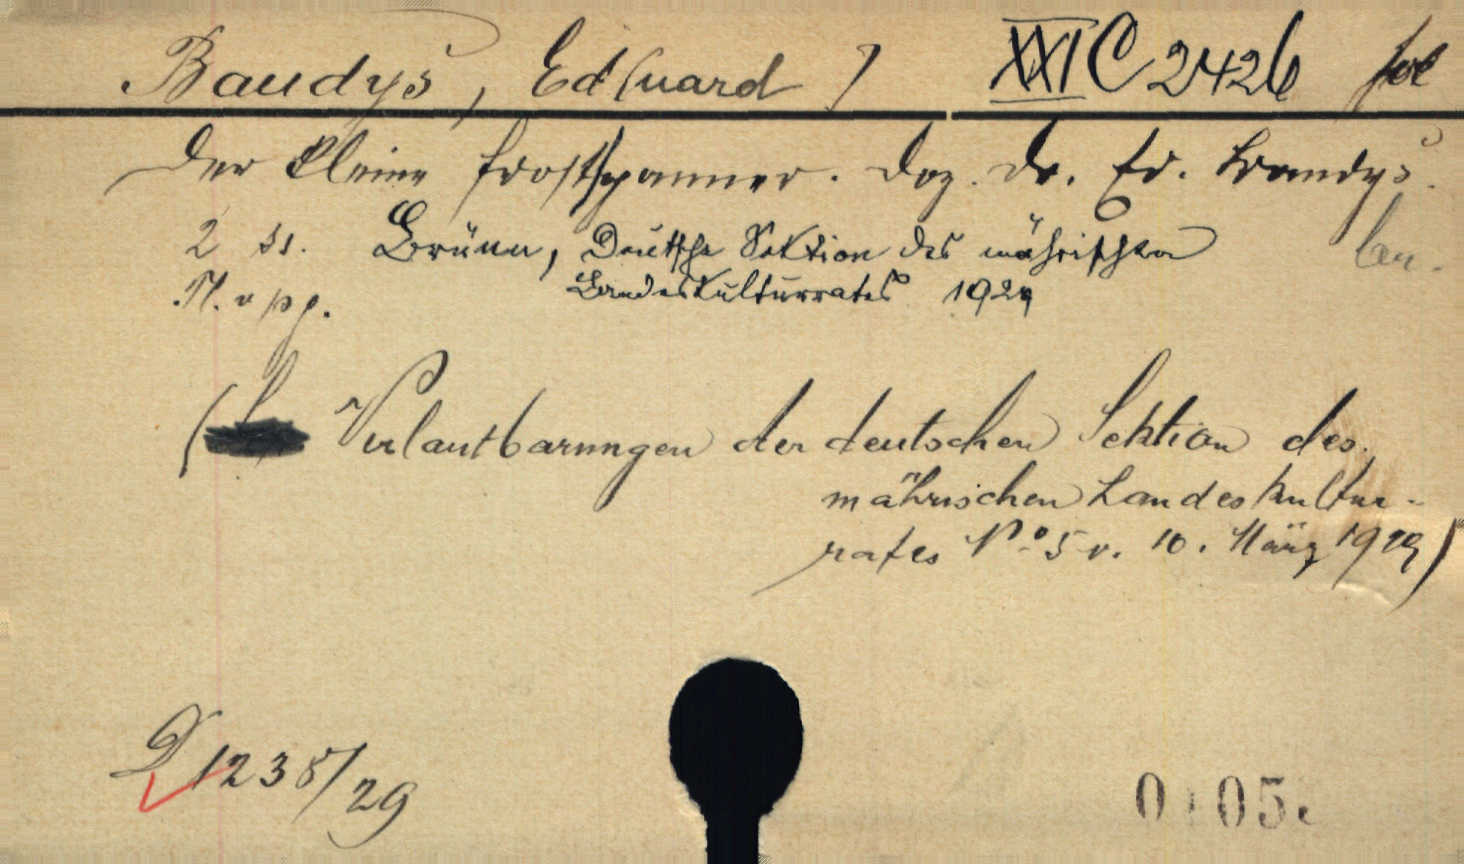 Baudyš, Ed(uard) XXI C 2426 fol
Der kleine Frostspanner. Doz. Dr. Ed. Baudyš.
2 ss. Brünn, Deutsche Sektion des mährischen
Landeskulturrates 1929
(Verlautbarungen der deutschen Sektion des
mährischen Landeskultur-
rates No 5 v. 10. März 1929)
D 1238/29